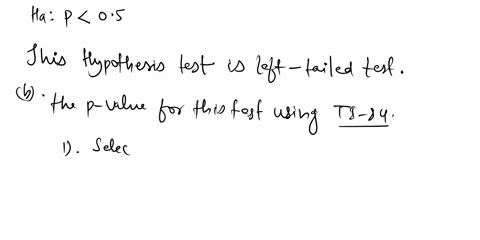 Ha: P < 0.5
This Hypothesis test is left-tailed test.
(b). the p-value for this test using TI-84.
1). Selec